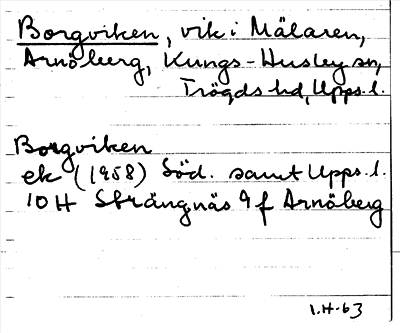 Borgviken, vik i Mälaren,
Arnöberg, Kungs-Husby sn,
Trögds hd, Upps. l.
Borgviken
ek (1958) Söd. samt Upps. l.
10 H Strängnäs 9 f Arnöberg
1.H-63